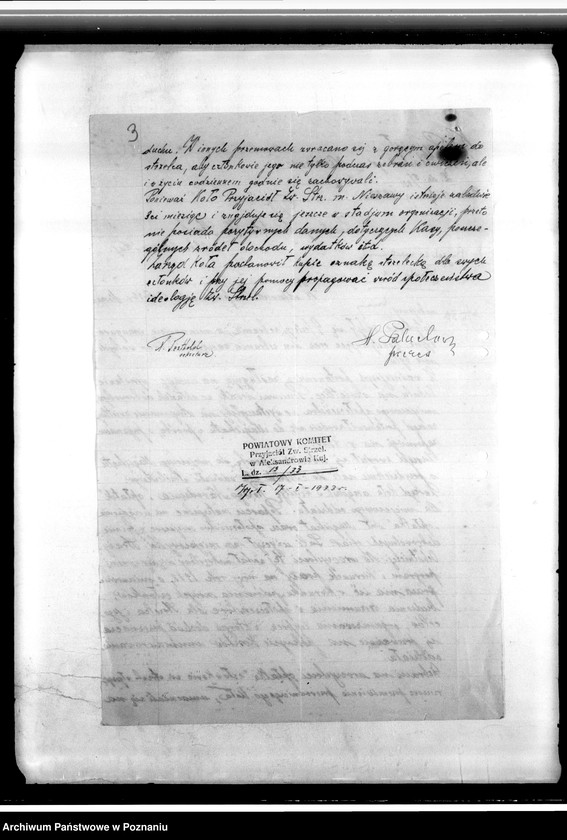 3
duchu. W innych przemowach zwracano się z gorącym apelem do
strzelca, aby członkowie jego nie tylko podczas zebrań i ćwiczeń, ale
i w życiu codziennem godnie się zachowywali.
Ponieważ Koło Przyjaciół Zw. Strz. m. Nieszawy istnieje zaledwie
miesiąc i znajduje się jeszcze w stadjum organizacji, przeto
nie posiada pozytywnych danych, dotyczących Kasy, poszcze-
gólnych źródeł dochodu, wydatków itd.
Zarząd Koła postanowił kupić oznakę strzelecką dla swych
członków i przy jej pomocy propagować wśród społeczeństwa
ideologję Zw. Strzel.
sekretarz
prezes
POWIATOWY KOMITET
Przyjaciół Zw. Strzel.
w Aleksandrowie Kuj.
L. dz. 12/33
17-I-1933 r.
Archiwum Państwowe w Poznaniu